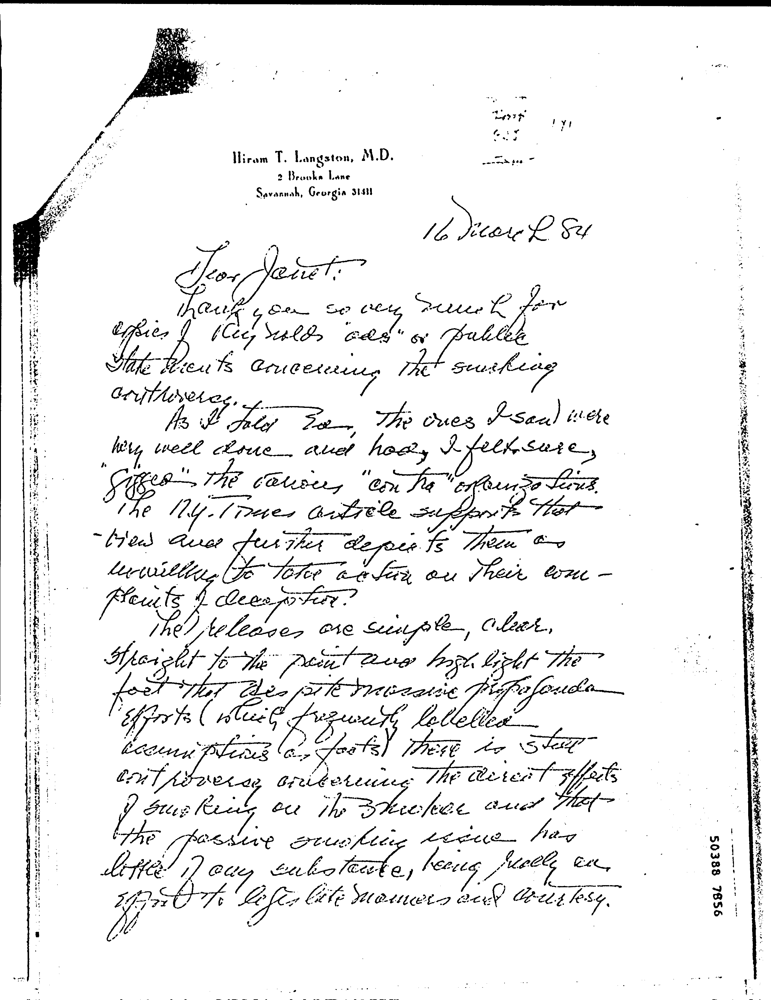 Hiram T. Langston, M.D.
2 Brooks Lane
Savannah, Georgia 31411
16 March 84
Dear Janet:
Thank you so very much for
copies of Reynolds "ads" or public
statements concerning the smoking
controversy.
As I told Ed, the ones I saw were
very well done and had, I felt sure,
the various "contra" organizations.
The N.Y. Times article supports that
view and further depicts them as
unwilling to take action on their com-
plaints of deception!
The releases are simple, clear,
straight to the point and highlight the
fact that despite massive propaganda
efforts (which frequently labelled
assumptions as facts) there is still
controversy concerning the direct effects
of smoking on the smoker and that
the passive smoking issue has
little if any substance, being really an
effort to legislate manners and courtesy.
50388 7856